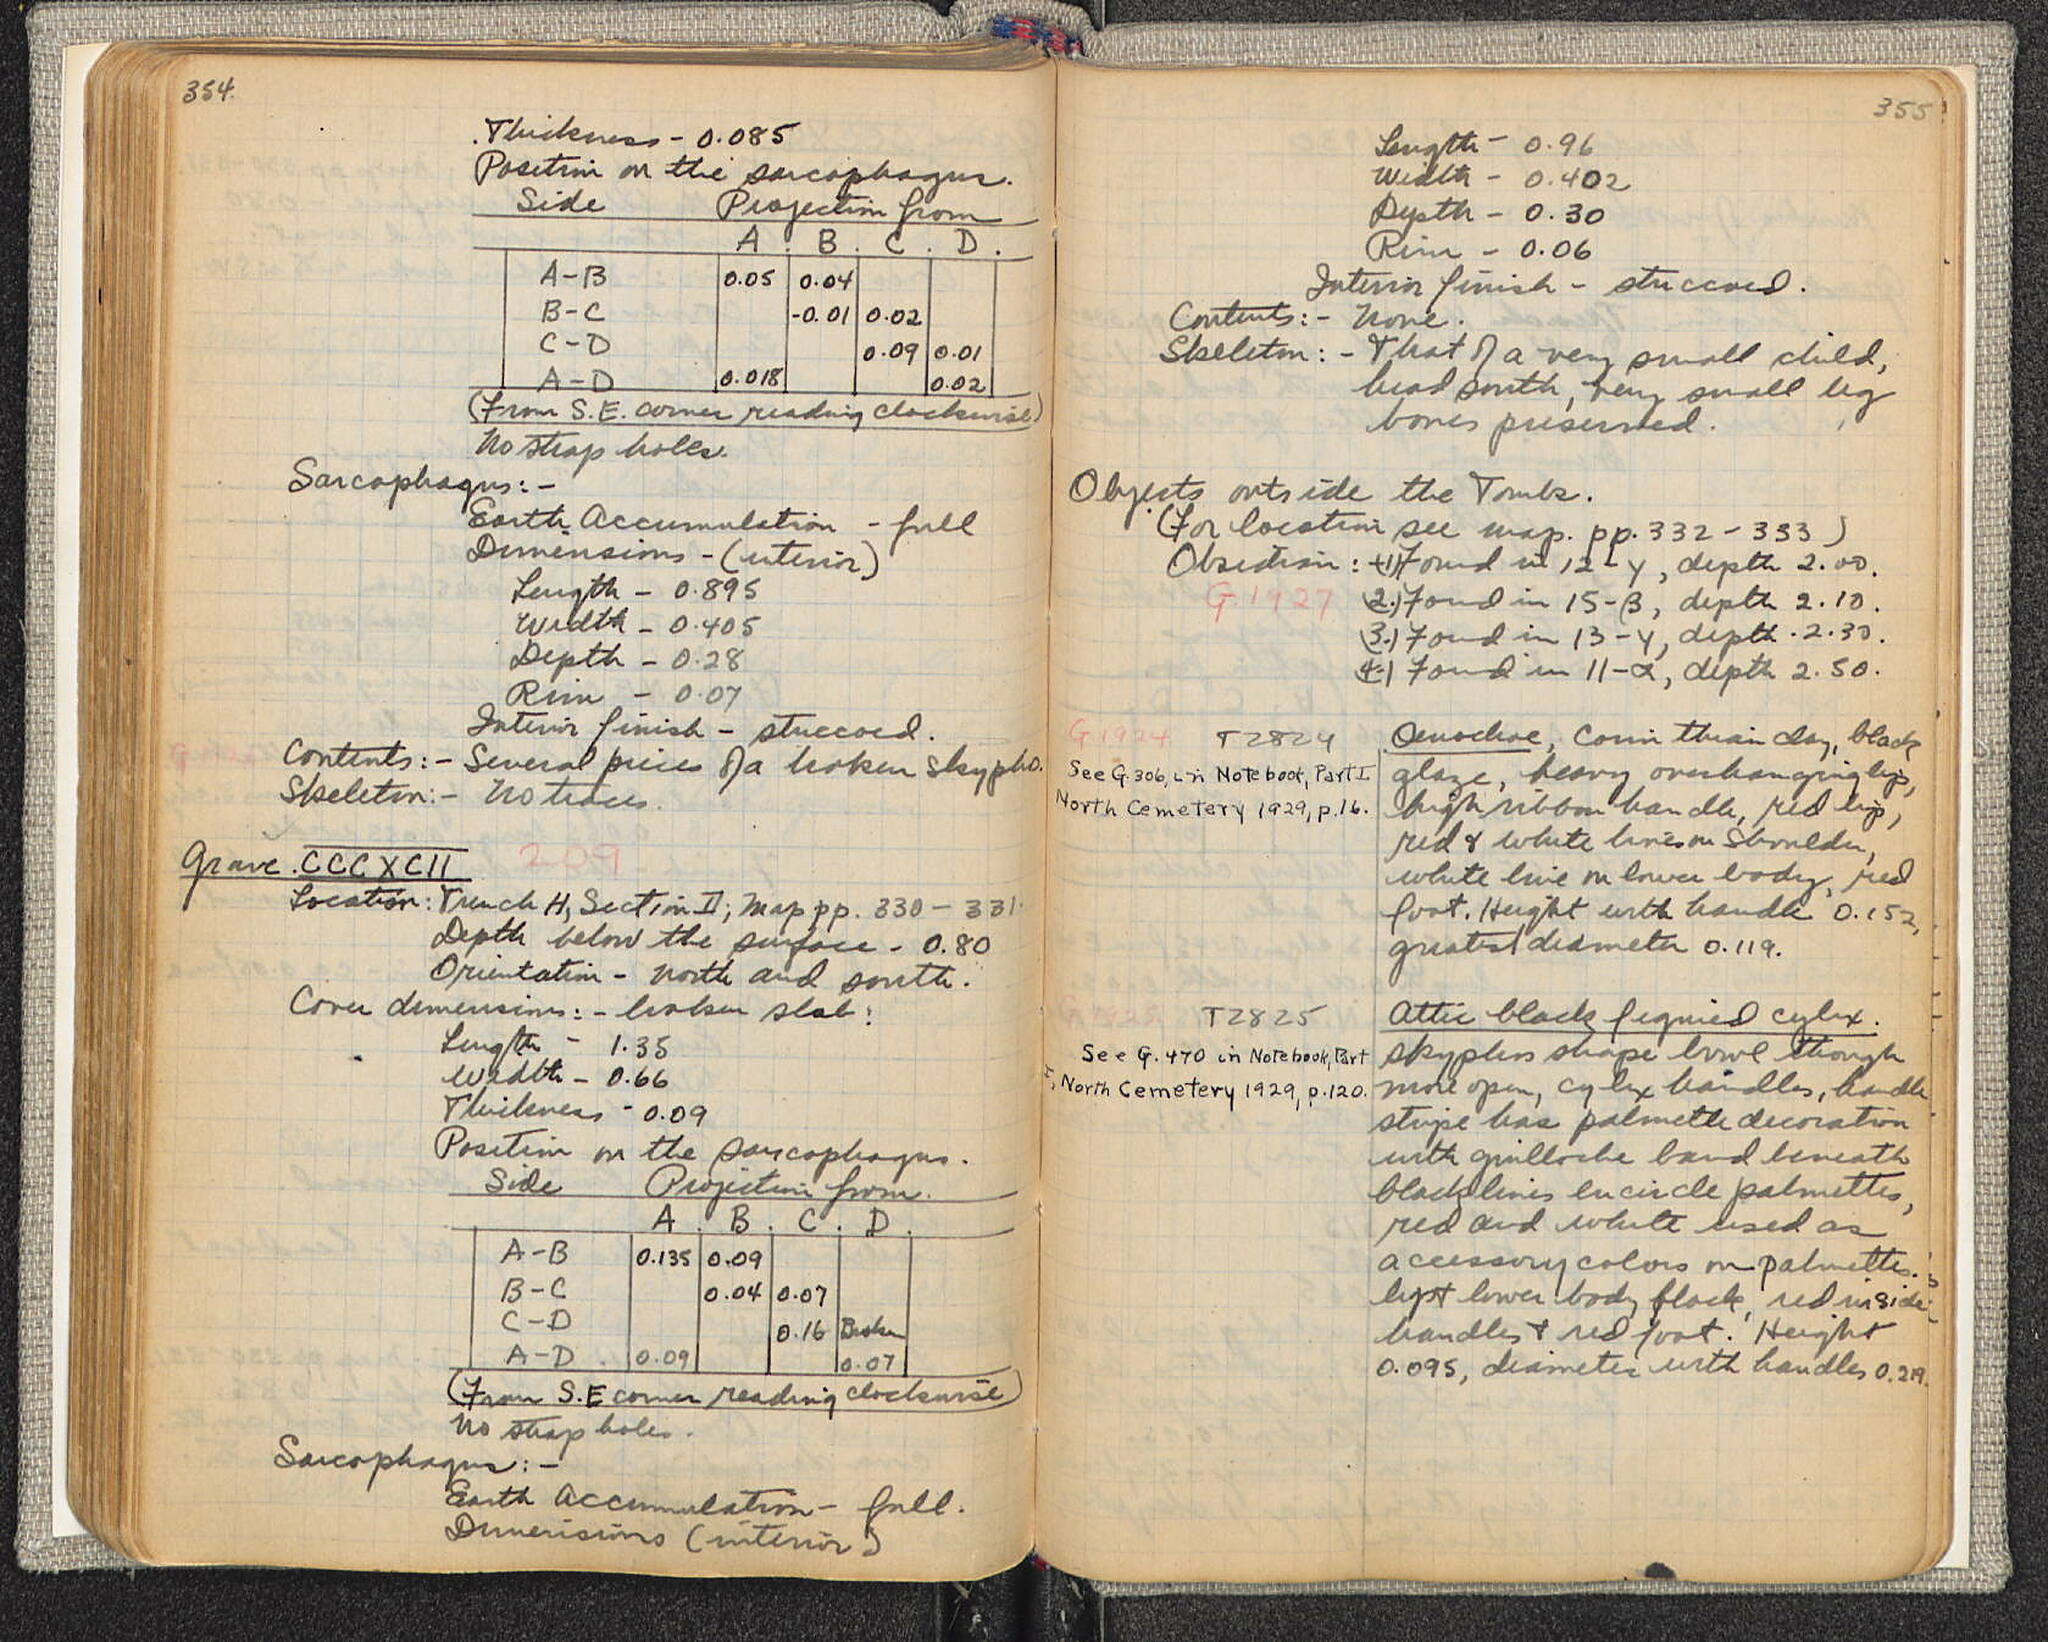 354.
Thickness - 0.085
Position on the sarcophagus.
Side Projection from
A. B. C. D.
A-B 0.05 0.04
B-C -0.01 0.02
C-D 0.09 0.01
A-D 0.018 0.02
(From S.E. corner reading clockwise)
No strap holes.
Sarcophagus:-
Earth Accumulation - full
Dimensions - (interior)
Length - 0.895
Width - 0.405
Depth - 0.28
Rim - 0.07
Interior finish - stuccoed.
Contents:- Several pieces of a broken skypho.
Skeleton:- No traces.
Grave CCCXCII 289
Location: Trench H, Section II; Map pp. 330-331.
Depth below the surface - 0.80
Orientation - North and south.
Cover dimensions:- broken slab:
Length - 1.35
Width - 0.66
Thickness - 0.09
Position on the sarcophagus.
Side Projection from.
A. B. C. D.
A-B 0.135 0.09
B-C 0.04 0.07
C-D 0.16 Broken
A-D. 0.09 0.07
(From S.E corner reading clockwise)
No strap holes.
Sarcophagus:-
Earth Accumulation - full.
Dimensions (interior)
355
Length - 0.96
Width - 0.402
Depth - 0.30
Rim - 0.06
Interior finish - stuccoed.
Contents:- None.
Skeleton:- That of a very small child,
head south, very small leg
bones preserved.
Objects outside the Tombs.
(For location see map. pp. 332-333)
Obsidian: (1) Found in 12-γ, depth 2.00.
G.1927 (2.) Found in 15-β, depth 2.10.
(3.) Found in 13-γ, depth 2.30.
(4.) Found in 11-α, depth 2.50.
G 1924 T2824 Oenochoe, Corinthian clay, black
See G.306, in Notebook, Part I glaze, heavy overhanging lip,
North Cemetery 1929, p.16. high ribbon handle, red lip,
red & white lines on shoulder,
white line on lower body, red
foot. Height with handle 0.152,
greatest diameter 0.119.
G 1925 T2825 Attic black figured cylix.
See G. 470 in Notebook, Part skyphos shape bowl though
I, North Cemetery 1929, p.120. more open, cylix handles, handle
stripe has palmette decoration
with guilloche band beneath
black lines encircle palmettes,
red and white used as
accessory colors on palmettes.
lip & lower body black, red inside
handles & red foot. Height
0.095, diameter with handles 0.219.